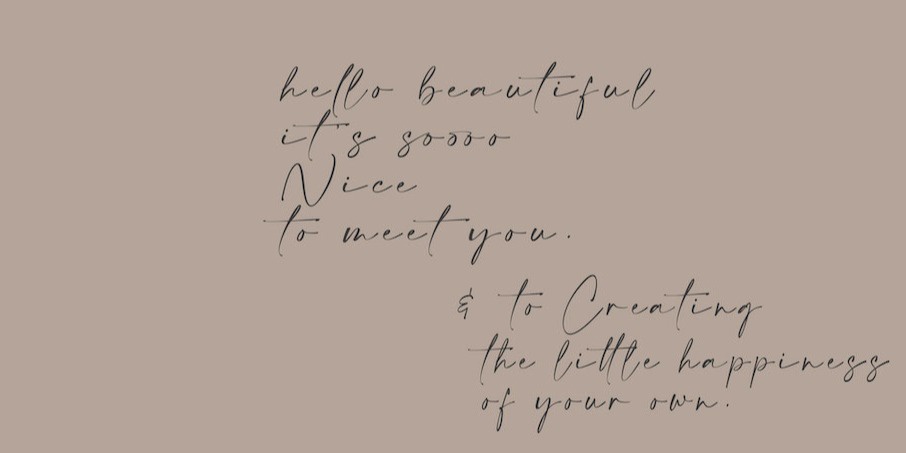 hello beautiful
it's soooo
Nice
to meet you.
& to Creating
the little happiness
of your own.